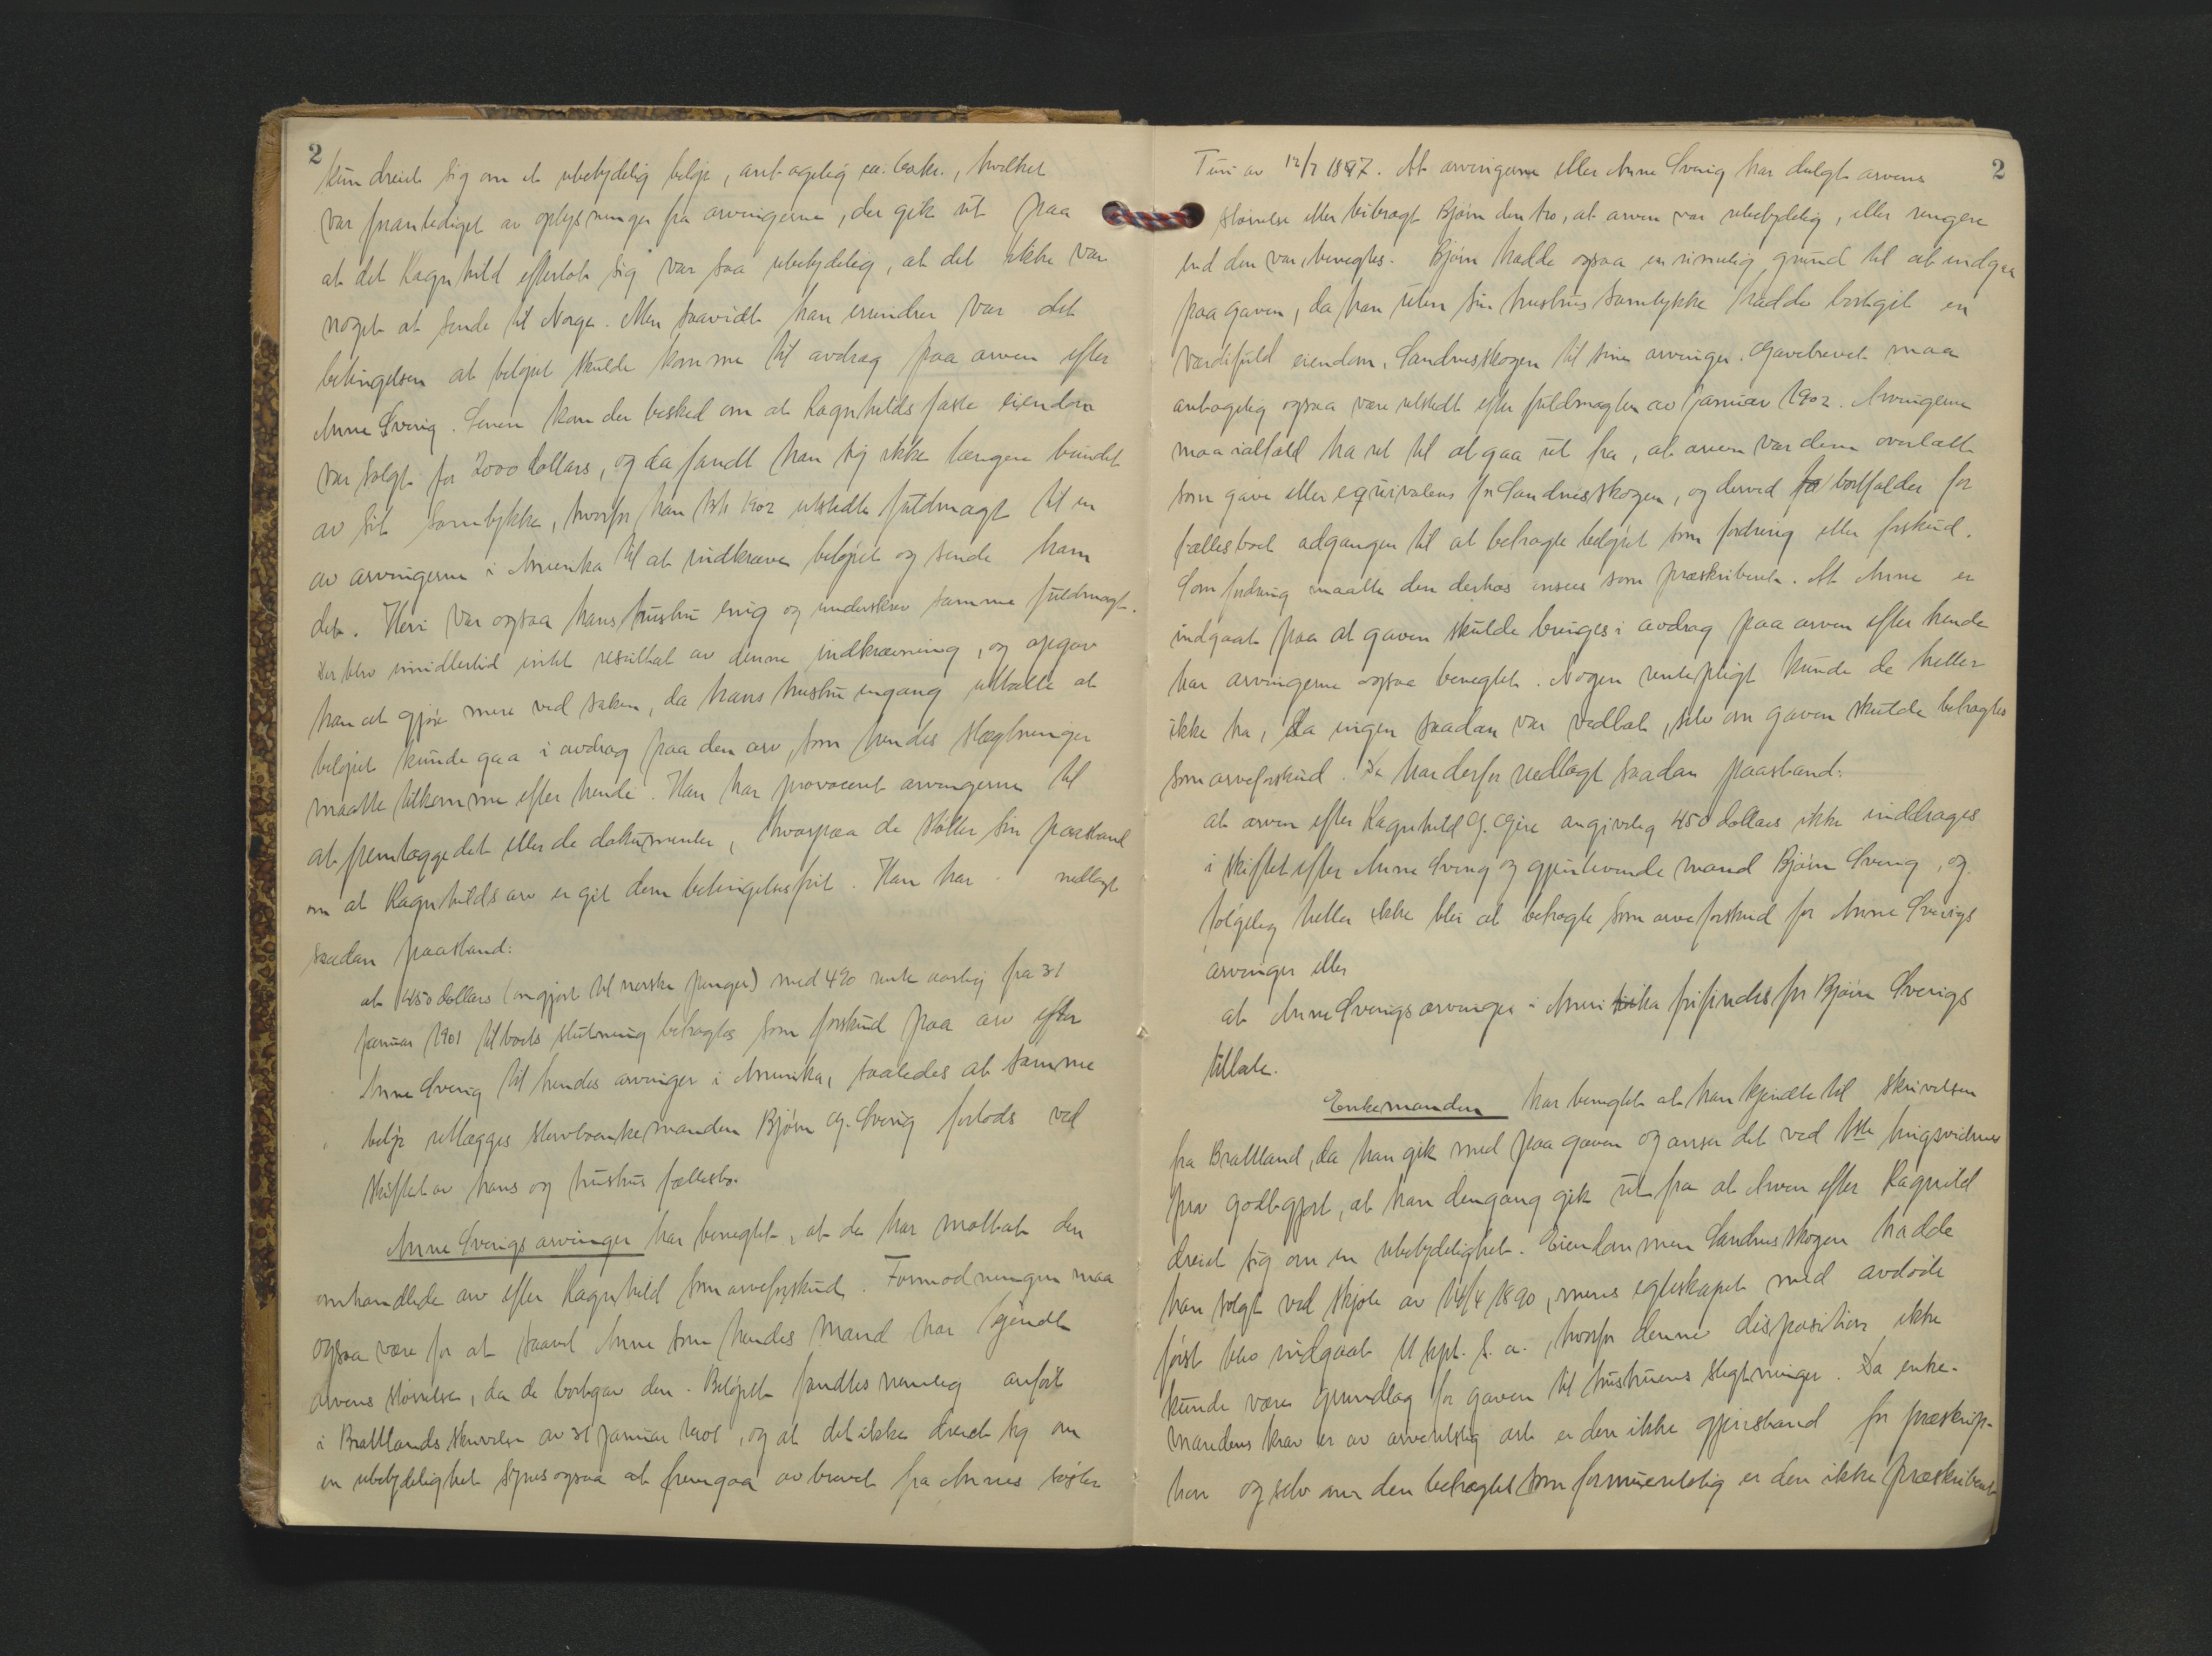 2
kun dreiet sig om et ubetydelig beløp, antagelig ca. kr., hvilket
var foranlediget av oplysninger fra arvingerne, der gik ut paa
at det Ragnhild efterlot sig var saa ubetydelig, at det ikke var
noget at sende til Norge. Men saavidt han erindrer var det
betingelsen at beløpet skulde komme til avdrag paa arven efter
Anne Sverig. Senere kom der besked om at Ragnhilds faste eiendom
var solgt for 2000 dollars, og da fandt han sig ikke længere bundet
av sit samtykke, hvorfor han 1902 utstedte fuldmagt til en
av arvingerne i Amerika til at indkræve beløpet og sende ham
det. Heri var ogsaa hans hustru enig og underskrev samme fuldmagt.
Der blev imidlertid intet resultat av denne indkrævning, og opgav
han at gjøre mere ved saken, da hans hustru engang uttalte at
beløpet kunde gaa i avdrag paa den arv, som hendes slægtninger
maatte tilkomme efter hende. Han har provoceret arvingerne til
at fremlægge det eller de dokumenter, hvorpaa de støtter sin paastand
om at Ragnhilds arv er git dem betingelsesfrit. Han har nedlagt
saadan paastand:
at 450 dollars (omgjort til norske penger) med 4% rente aarlig fra 31
januar 1901 til boets slutning betragtes som forskud paa arv efter
Anne Sverig til hendes arvinger i Amerika, saaledes at samme
beløp utlægges stervboenkemanden Bjørn G. Sverig forlods ved
skiftet av hans og hustrus fællesbo.
Anne Sverigs arvinger har benegtet, at de har mottat den
omhandlede arv efter Ragnhild som arveforskud. Formodningen maa
ogsaa være for at saavel Anne som hendes mand har kjendt
arvens størrelse, da de bortgav den. Beløpet fandtes nemlig anført
i Brattlands skrivelse av 31 januar 1901, og at det ikke dreiet sig om
en ubetydelighet synes ogsaa at fremgaa av brevet fra Annes søster
2
Turi av 12/7 1897. At arvingerne eller Anne Sverig har dulgt arvens
størrelse eller bibragt Bjørn den tro, at arven var ubetydelig, eller ringere
end den var, benegtes. Bjørn hadde ogsaa en rimelig grund til at indgaa
paa gaven, da han uten sin hustrus samtykke hadde bortgit en
værdifuld eiendom, Sandnesskogen til sine arvinger. Gavebrevet maa
antagelig ogsaa være utstedt efter fuldmagten av januar 1902. Arvingerne
maa ialfald ha ret til at gaa ut fra, at arven var dem overlatt
som gave eller equivalens for Sandnesskogen, og derved bortfalder for
fællesboet adgangen til at betragte beløpet som fordring eller forskud.
Som fordring maatte den derhos ansees som præskriberet. At Anne er
indgaat paa at gaven skulde bruges i avdrag paa arven efter hende
har arvingerne ogsaa benegtet. Nogen rentepligt kunde de heller
ikke ha, da ingen saadan var vedtat, selv om gaven skulde betragtes
som arveforskud. De har derfor nedlagt saadan paastand:
at arven efter Ragnhild G. Gjere angivelig 450 dollars ikke inddrages
i skiftet efter Anne Sverig og gjenlevende mand Bjørn Sverig, og
følgelig heller ikke blir at betragte som arveforskud for Anne Sverigs
arvinger eller
at Anne Sverigs arvinger i Amerika frifindes for Bjørn Sverigs
tiltale.
Enkemanden har benegtet at han kjendte til skrivelsen
fra Brattland, da han gik med paa gaven og anser det ved 1ste tingsvidnes
prov godtgjort, at han dengang gik ut fra at Arven efter Ragnild
dreiet sig om en ubetydelighet. Eiendommen Sandnesskogen hadde
han solgt ved skjøte av 14/4 1890, mens egteskapet med avdøde
først blev indgaat 11 sept. s. a., hvorfor denne disposition ikke
kunde være grundlag for gaven til hustruens slegtninger. Da enke-
mandens krav er av arveretslig art er den ikke gjenstand for præskrip-
tion og selv om den betragtes som formueretslig er den ikke præskriberet